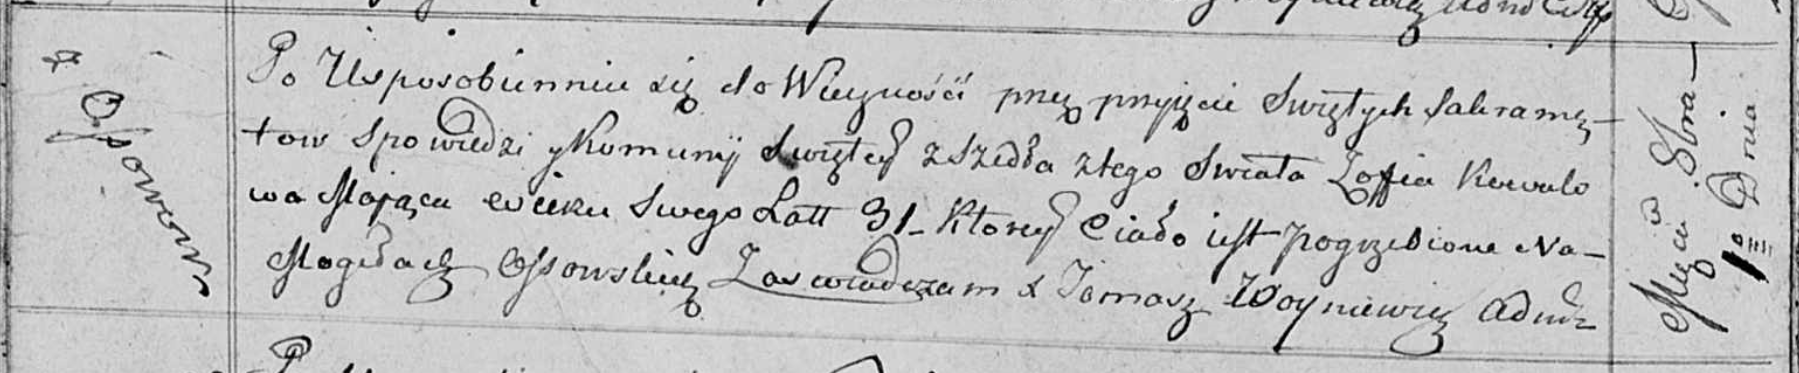 Ossowo
Po Usposobienniu się do Wieczności przez przyięcie Swiętych Sakramę-
tow Spowiedzi y Komunij Swiętey zszedła ztego Swiata Zoffia Kowalo
wa Maiąca wieku Swego Latt 31 - Ktorey Ciało iest pogrzebione Na-
Mogiłach Ossowskich Zaswiadczam X Tomasz Woyniewicz
Męca
Dnia